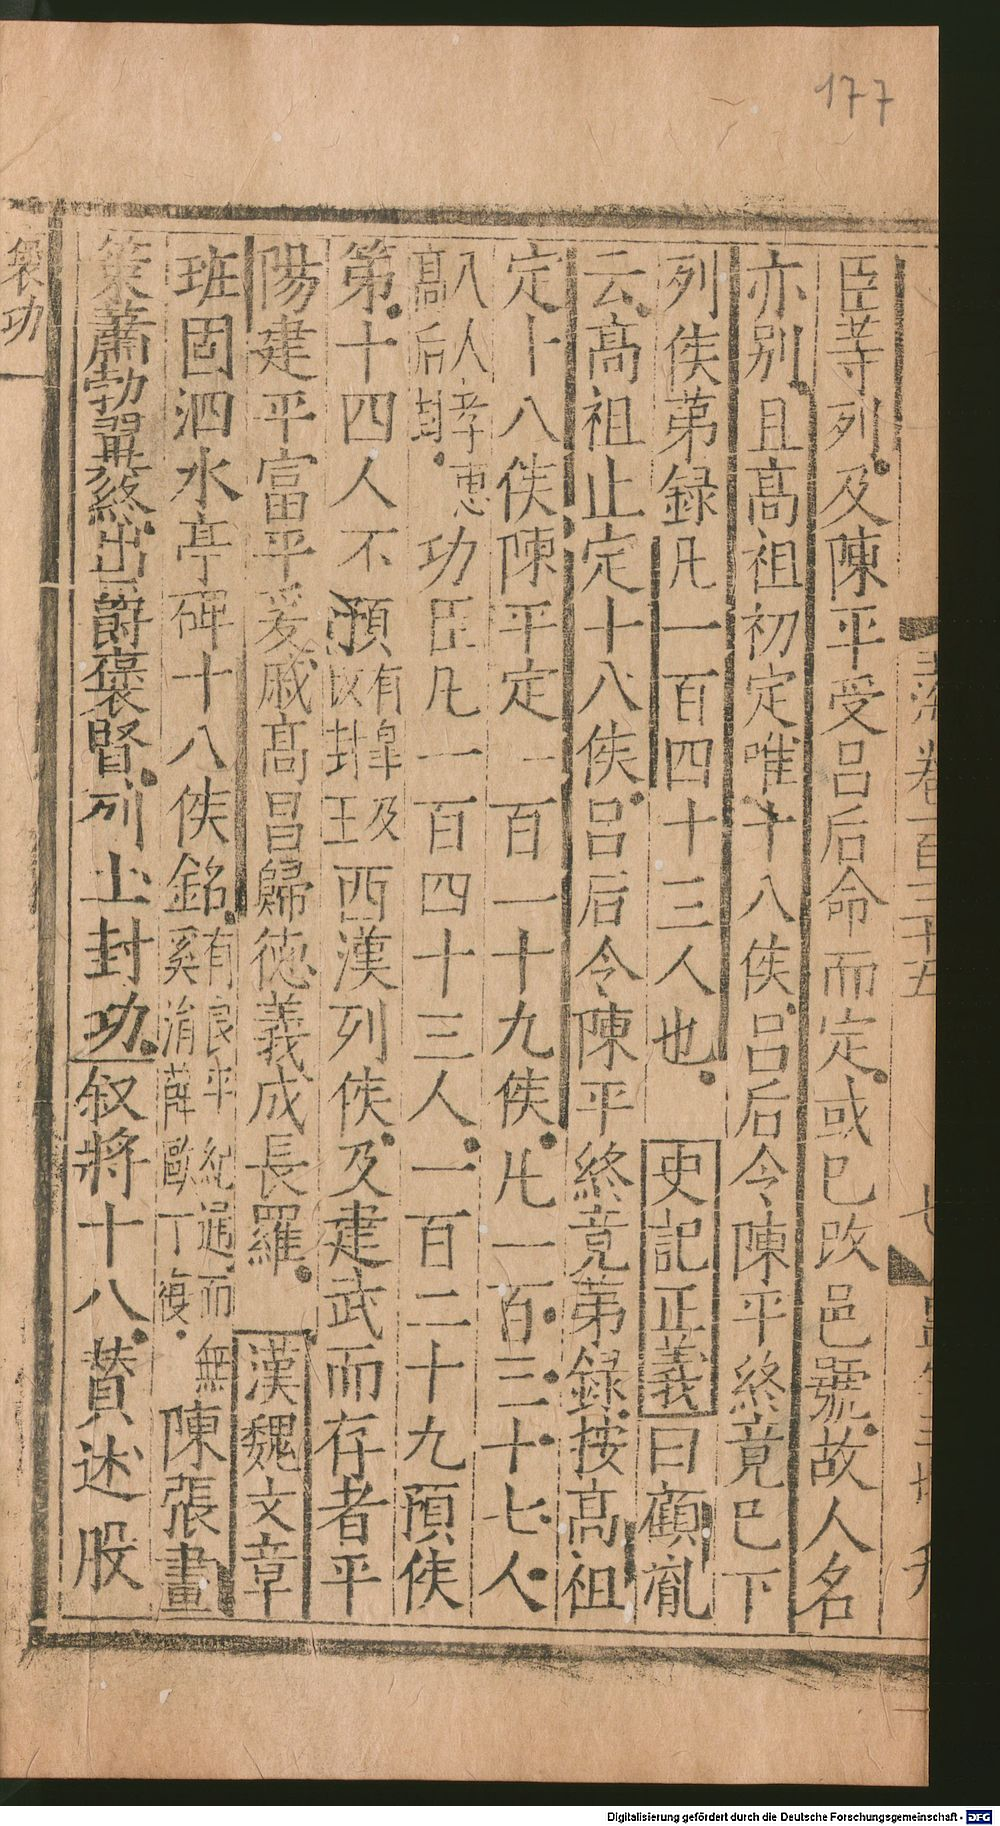 177
臣等列及陳平受呂后命而定或已改邑號故人名
亦別且髙祖初定唯十八侯呂后令陳平終竟已下
列侯苐録凡一百四十三人也 史記正義曰顧胤
云髙祖止定十八侯呂后令陳平終竟苐録按髙祖
定十八侯陳平定一百一十九侯凡一百三十七人
八人孝恵
髙后封
功臣凡一百四十三人一百二十九預侯
第十四人不預
有韋及
以封王
西漢列侯及建武而存者平
陽建平富平爰戚髙昌歸徳義成長羅 漢魏文章
班固泗水亭碑十八侯銘
有良平紀通而無
奚涓薛歐丁復
陳張畫
策蕭勃翼終出爵褒賢列土封功叙將十八賛述股
褒功
Digitalisierung gefördert durch die Deutsche Forschungsgemeinschaft - DFG